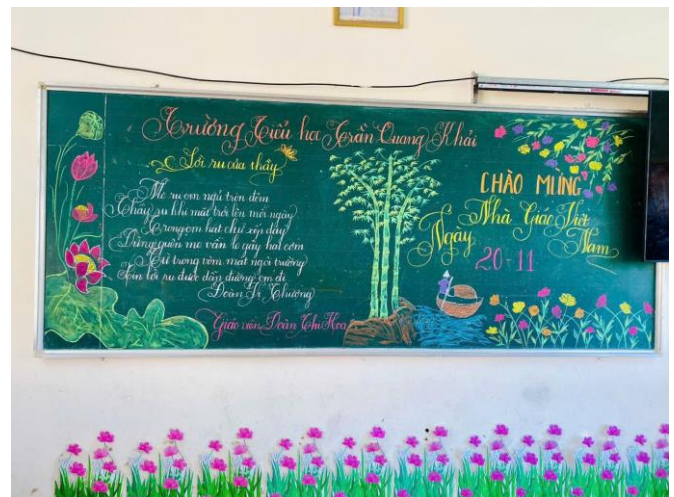 Trường Tiểu học Trần Quang Khải
Lời ru của thầy
Mẹ ru em ngủ tròn đêm
Thầy ru khi mặt trời lên mỗi ngày
Trong em hạt chữ xếp dày
Đừng quên mẹ vẫn lo gầy hạt cơm
Từ trong vòm mát ngôi trường
Xin lời ru được dẫn đường em đi
Đoàn Vị Thượng
Giáo viên Đoàn Thị Hoa
CHÀO MỪNG
Ngày Nhà Giáo Việt Nam
20-11